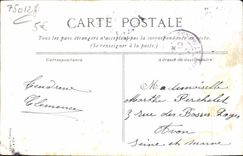 75012
5€
CARTE POSTALE
Tous les pays étrangers n'acceptent pas la correspondance au recto
(Se renseigner à la poste).
Correspondance
Adresse du destinataire
Tendresse
Clémence
Mademoiselle
Marthe Perchelet
3 rue des Basses Loges
Avon
Seine et Marne